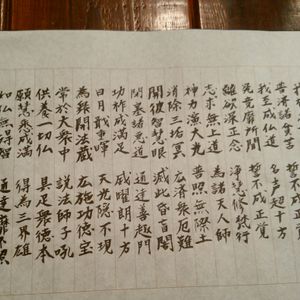 普済諸貧苦 誓不成正覚
我至成仏道 名声超十方
究竟靡所聞 誓不成正覚
離欲深正念 浄慧修梵行
志求無上道 為諸天人師
神力演大光 普照無際土
消除三垢冥 広済衆厄難
開彼智慧眼 滅此昏盲闇
閉塞諸悪道 通達善趣門
功祚成満足 威曜朗十方
日月戢重暉 天光隠不現
為衆開法蔵 広施功徳宝
常於大衆中 説法師子吼
供養一切仏 具足衆徳本
願慧悉成満 得為三界雄
如仏無碍智 通達靡不照